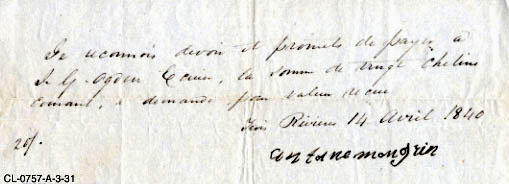 Je reconnois devoir et promets de payer à
I. G. Ogden Ecuier, la somme de vingt Chelins
courant, à demande pour valeur recue
Trois Rivieres 14 Avril 1840
20/.
antoine mongrin
CL-0757-A-3-31